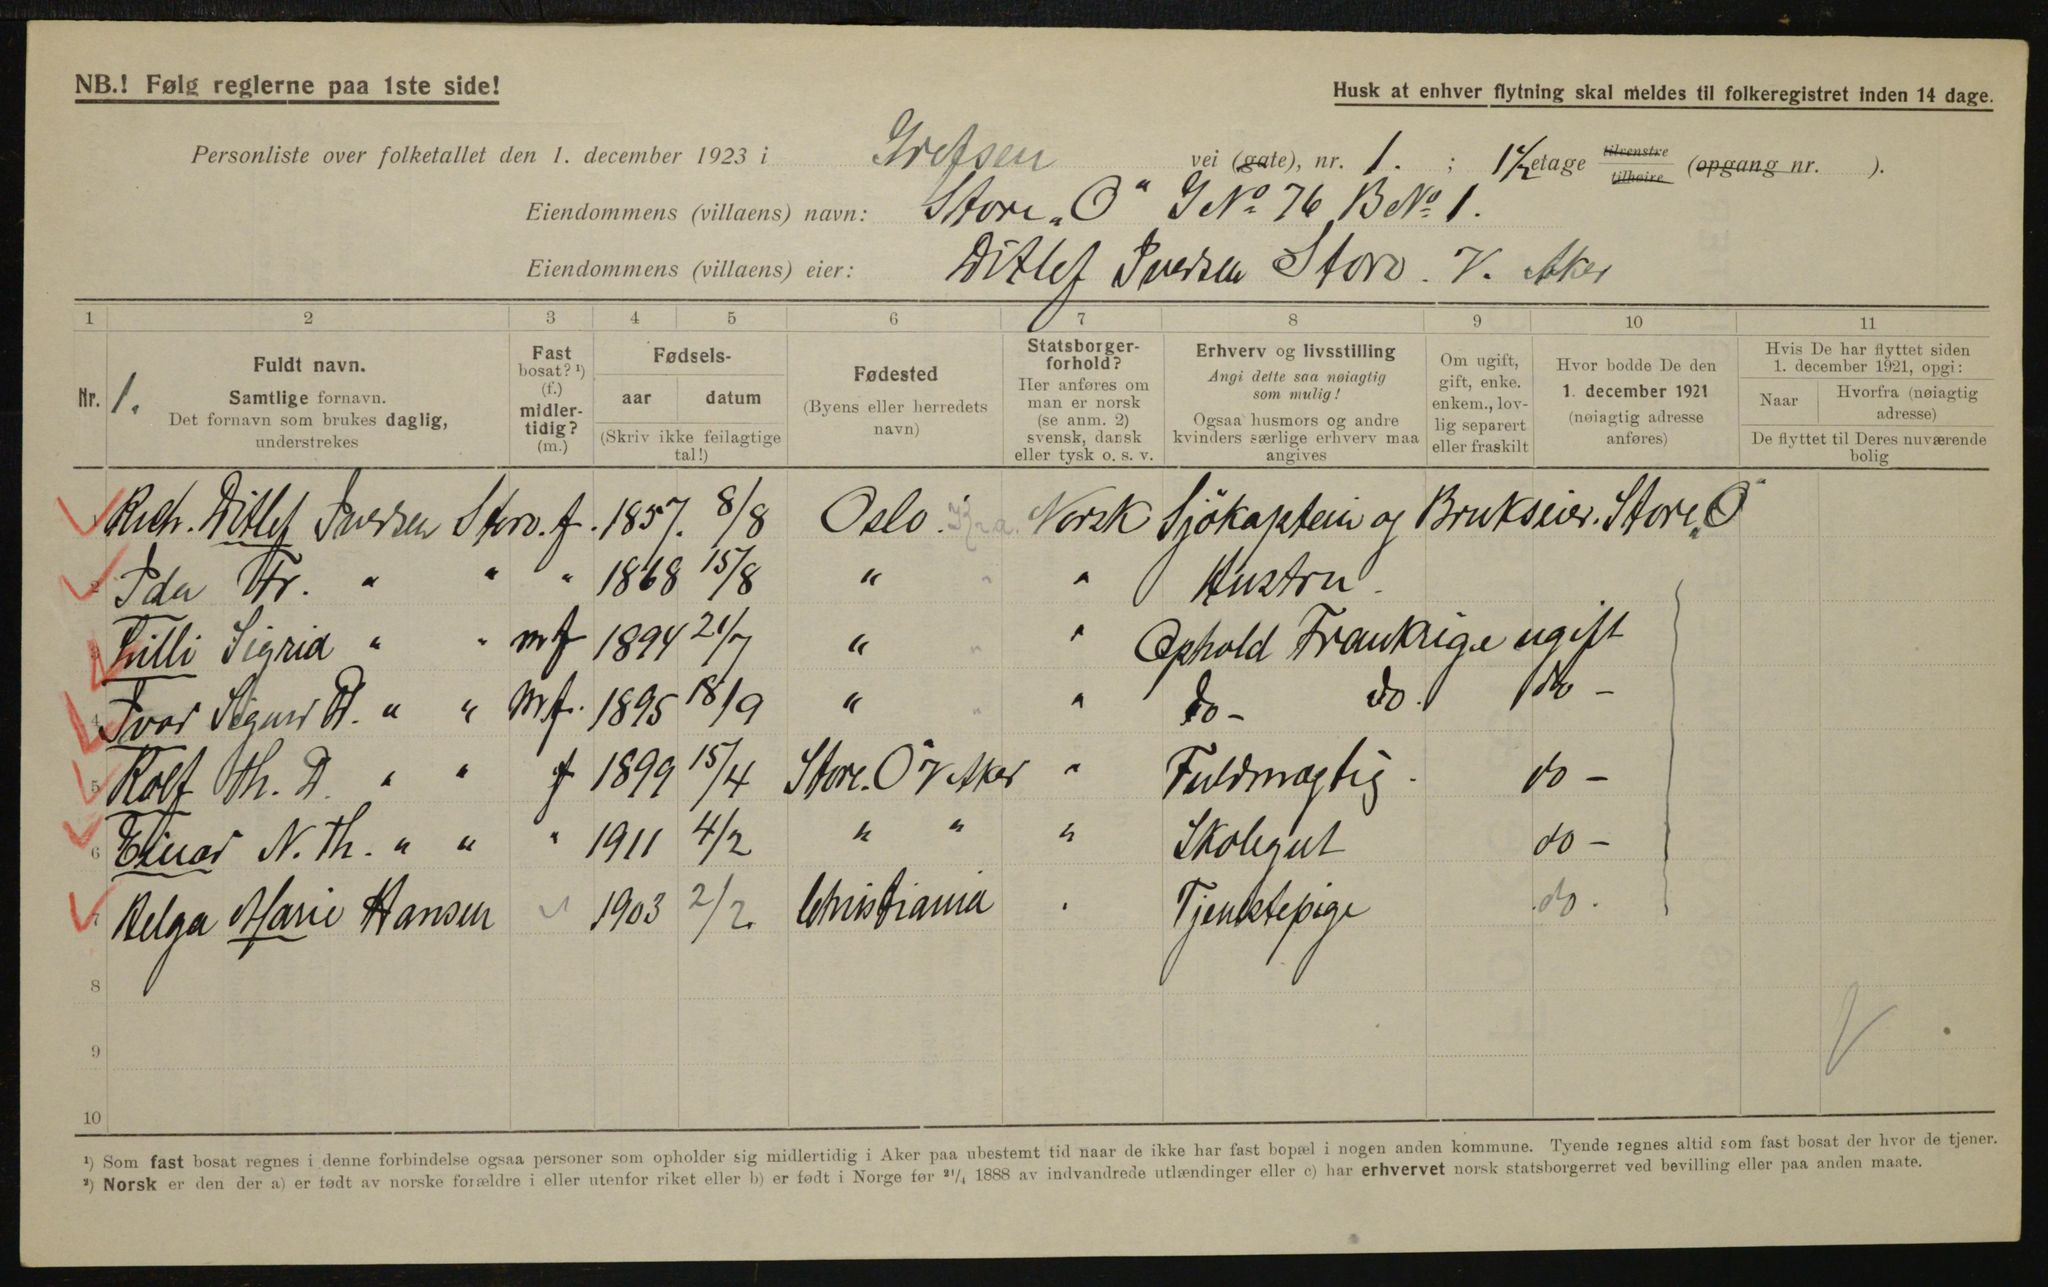 NB.! Følg reglerne paa 1ste side!
Husk at enhver flytning skal meldes til folkeregistret inden 14 dage.
Personliste over folketallet den 1. december 1923 i Grefsen vei (gate), nr. 1. ; 1 1/2 etage tilvenstre tilhøire (opgang nr. ).
Eiendommens (villaens) navn: Store „O" G No 76 B No 1.
Eiendommens (villaens) eier: Ditlef Iversen Storo. V. Aker
1 2 3 4 5 6 7 8 9 10 11
Nr. 1.
Fuldt navn.
Samtlige fornavn.
Det fornavn som brukes daglig,
understrekes
Fast
bosat? ¹)
(f.)
midler-
tidig?
(m.)
Fødsels-
aar datum
(Skriv ikke feilagtige
tal!)
Fødested
(Byens eller herredets
navn)
Statsborger-
forhold?
Her anføres om
man er norsk
(se anm. 2)
svensk, dansk
eller tysk o. s. v.
Erhverv og livsstilling
Angi dette saa nøiagtig
som mulig!
Ogsaa husmors og andre
kvinders særlige erhverv maa
angives
Om ugift,
gift, enke.
enkem., lov-
lig separert
eller fraskilt
Hvor bodde De den
1. december 1921
(nøiagtig adresse
anføres)
Hvis De har flyttet siden
1. december 1921, opgi:
Naar
Hvorfra (nøiagtig
adresse)
De flyttet til Deres nuværende
bolig
Rich. Ditlef Iversen Storo. f. 1857. 8/8 Oslo. Kra. Norsk Sjökaptein og Brukseier. Store „O"
2 Ida Fr. " " " 1868 15/8 " " " Hustru.
3 Lilli Sigrid " " m f 1894 21/7 " " " Ophold Frankrige ugift
4 Ivar Sigurd D. " " m f. 1895 18/9 " " " do - do. do -
5 Rolf Th. D. " " f 1899 15/4 Store. O V Aker " Fuldmægtig. do -
6 Einar N. Th. " " " 1911 4/2 " " " Skolegut do -
7 Helga Marie Hansen " 1903 2/2. Christiania " Tjenstepige do.
8
9
10
¹) Som fast bosat regnes i denne forbindelse ogsaa personer som opholder sig midlertidig i Aker paa ubestemt tid naar de ikke har fast bopæl i nogen anden kommune. Tyende regnes altid som fast bosat der hvor de tjener.
²) Norsk er den der a) er født av norske forældre i eller utenfor riket eller b) er født i Norge før ²¹/₄ 1888 av indvandrede utlændinger eller c) har erhvervet norsk statsborgerret ved bevilling eller paa anden maate.